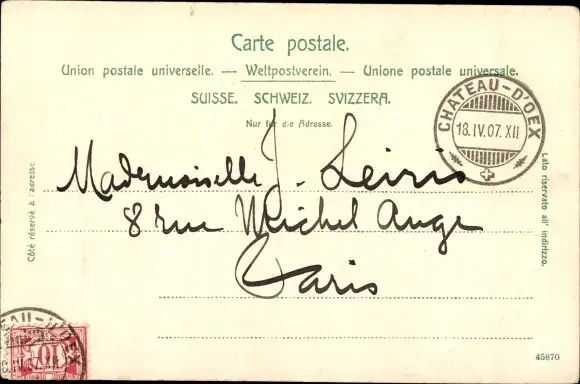 Carte postale.
Union postale universelle. — Weltpostverein. — Unione postale universale.
SUISSE. SCHWEIZ. SVIZZERA.
Nur für die Adresse.
CHATEAU-D'OEX
18.IV.07.XII
Côté réservé à l'adresse.
Lato riservato all' indirizzo.
Mademoiselle J. Leiris
8 rue Michel Ange
Paris
EAU-D'OEX
10
45870